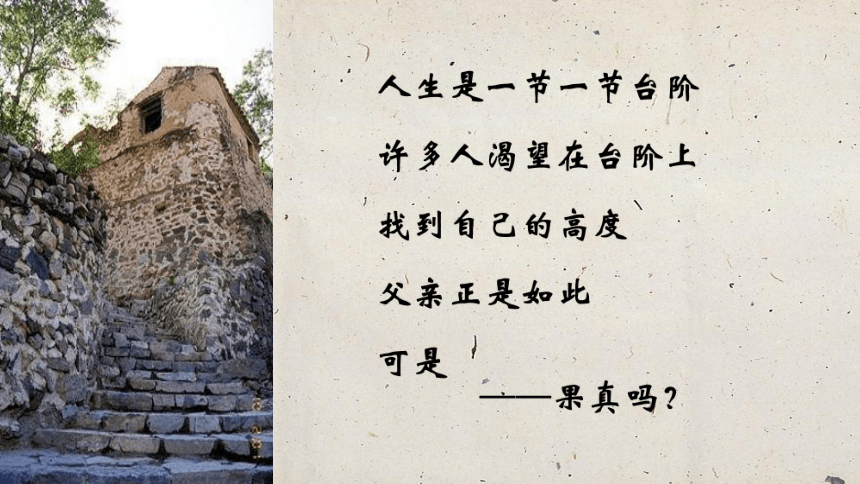 人生是一节一节台阶
许多人渴望在台阶上
找到自己的高度
父亲正是如此
可是
——果真吗？